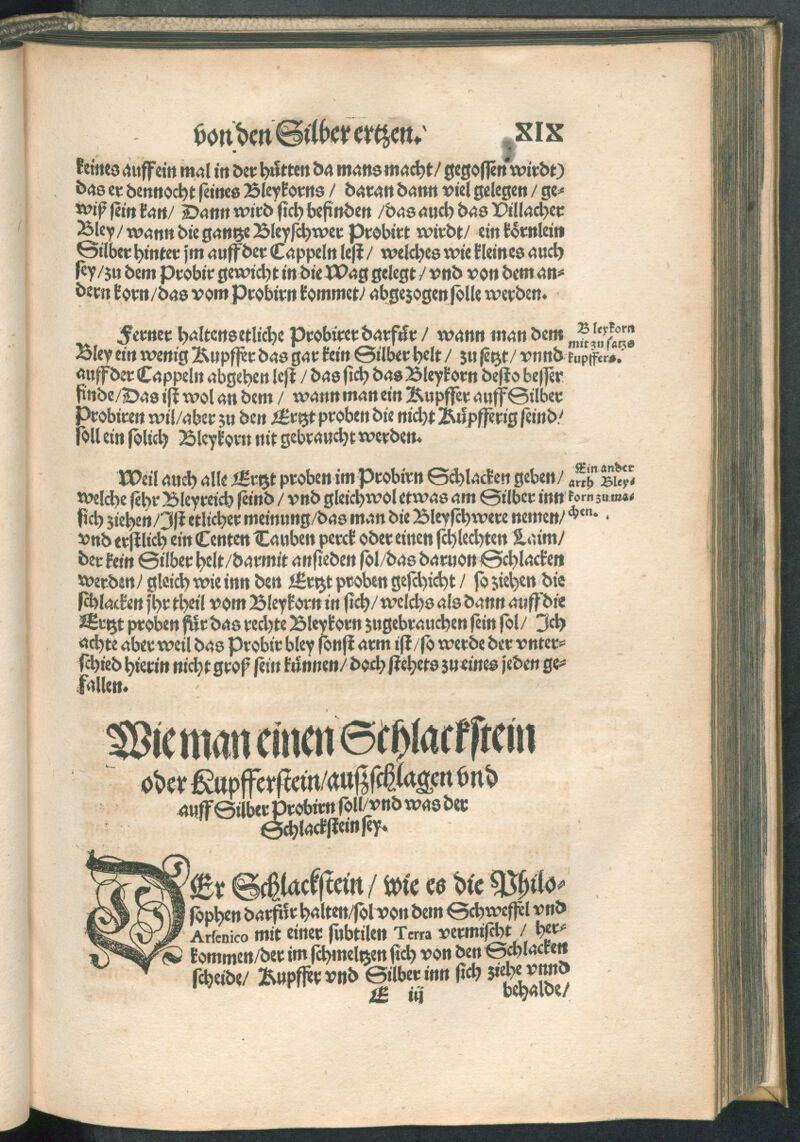 von den Silber ertzen. XIX
keines auff ein mal in der hütten da mans macht / gegossen wirdt)
das er dennocht seines Bleykorns / daran dann viel gelegen / ge-
wiß sein kan / Dann wird sich befinden / das auch das Villacher
Bley / wann die gantze Bleyschwer Probirt wirdt / ein körnlein
Silber hinter jm auff der Cappeln lest / welches wie klein es auch
sey / zu dem Probir gewicht in die Wag gelegt / vnd von dem an-
dern korn / das vom Probirn kommet / abgezogen solle werden.
Ferner haltens etliche Probirer darfür / wann man dem
Bley ein wenig Kupffer das gar kein Silber helt / zu setzt / vnnd
auff der Cappeln abgehen lest / das sich das Bleykorn desto besser
finde / Das ist wol an dem / wann man ein Kupffer auff Silber
Probiren wil / aber zu den Ertzt proben die nicht Küpfferig seind /
soll ein solich Bleykorn nit gebraucht werden.
Bleykorn
mit zu satzs
kupffers.
Weil auch alle Ertzt proben im Probirn Schlacken geben /
welche sehr Bleyreich seind / vnd gleichwol etwas am Silber inn
sich ziehen / Ist etlicher meinung / das man die Bleyschwere nemen /
vnd erstlich ein Centen Tauben perck oder einen schlechten Laim /
der kein Silber helt / darmit ansieden sol / das daruon Schlacken
werden / gleich wie inn den Ertzt proben geschicht / so ziehen die
schlacken jhr theil vom Bleykorn in sich / welchs als dann auff die
Ertzt proben für das rechte Bleykorn zugebrauchen sein sol / Ich
achte aber weil das Probir bley sonst arm ist / so werde der vnter-
schied hierin nicht groß sein künnen / doch stehets zu eines jeden ge-
fallen.
Ein ander
arth Bley-
korn zu ma-
chen.
Wie man einen Schlackstein
oder Kupfferstein / außschlagen vnd
auff Silber Probirn soll / vnd was der
Schlackstein sey.
DEr Schlackstein / wie es die Philo-
sophen darfür halten / sol von dem Schweffel vnd
Arsenico mit einer subtilen Terra vermischt / her-
kommen / der im schmeltzen sich von den Schlacken
scheide / Kupffer vnd Silber inn sich ziehe vnnd
E iij behalde /